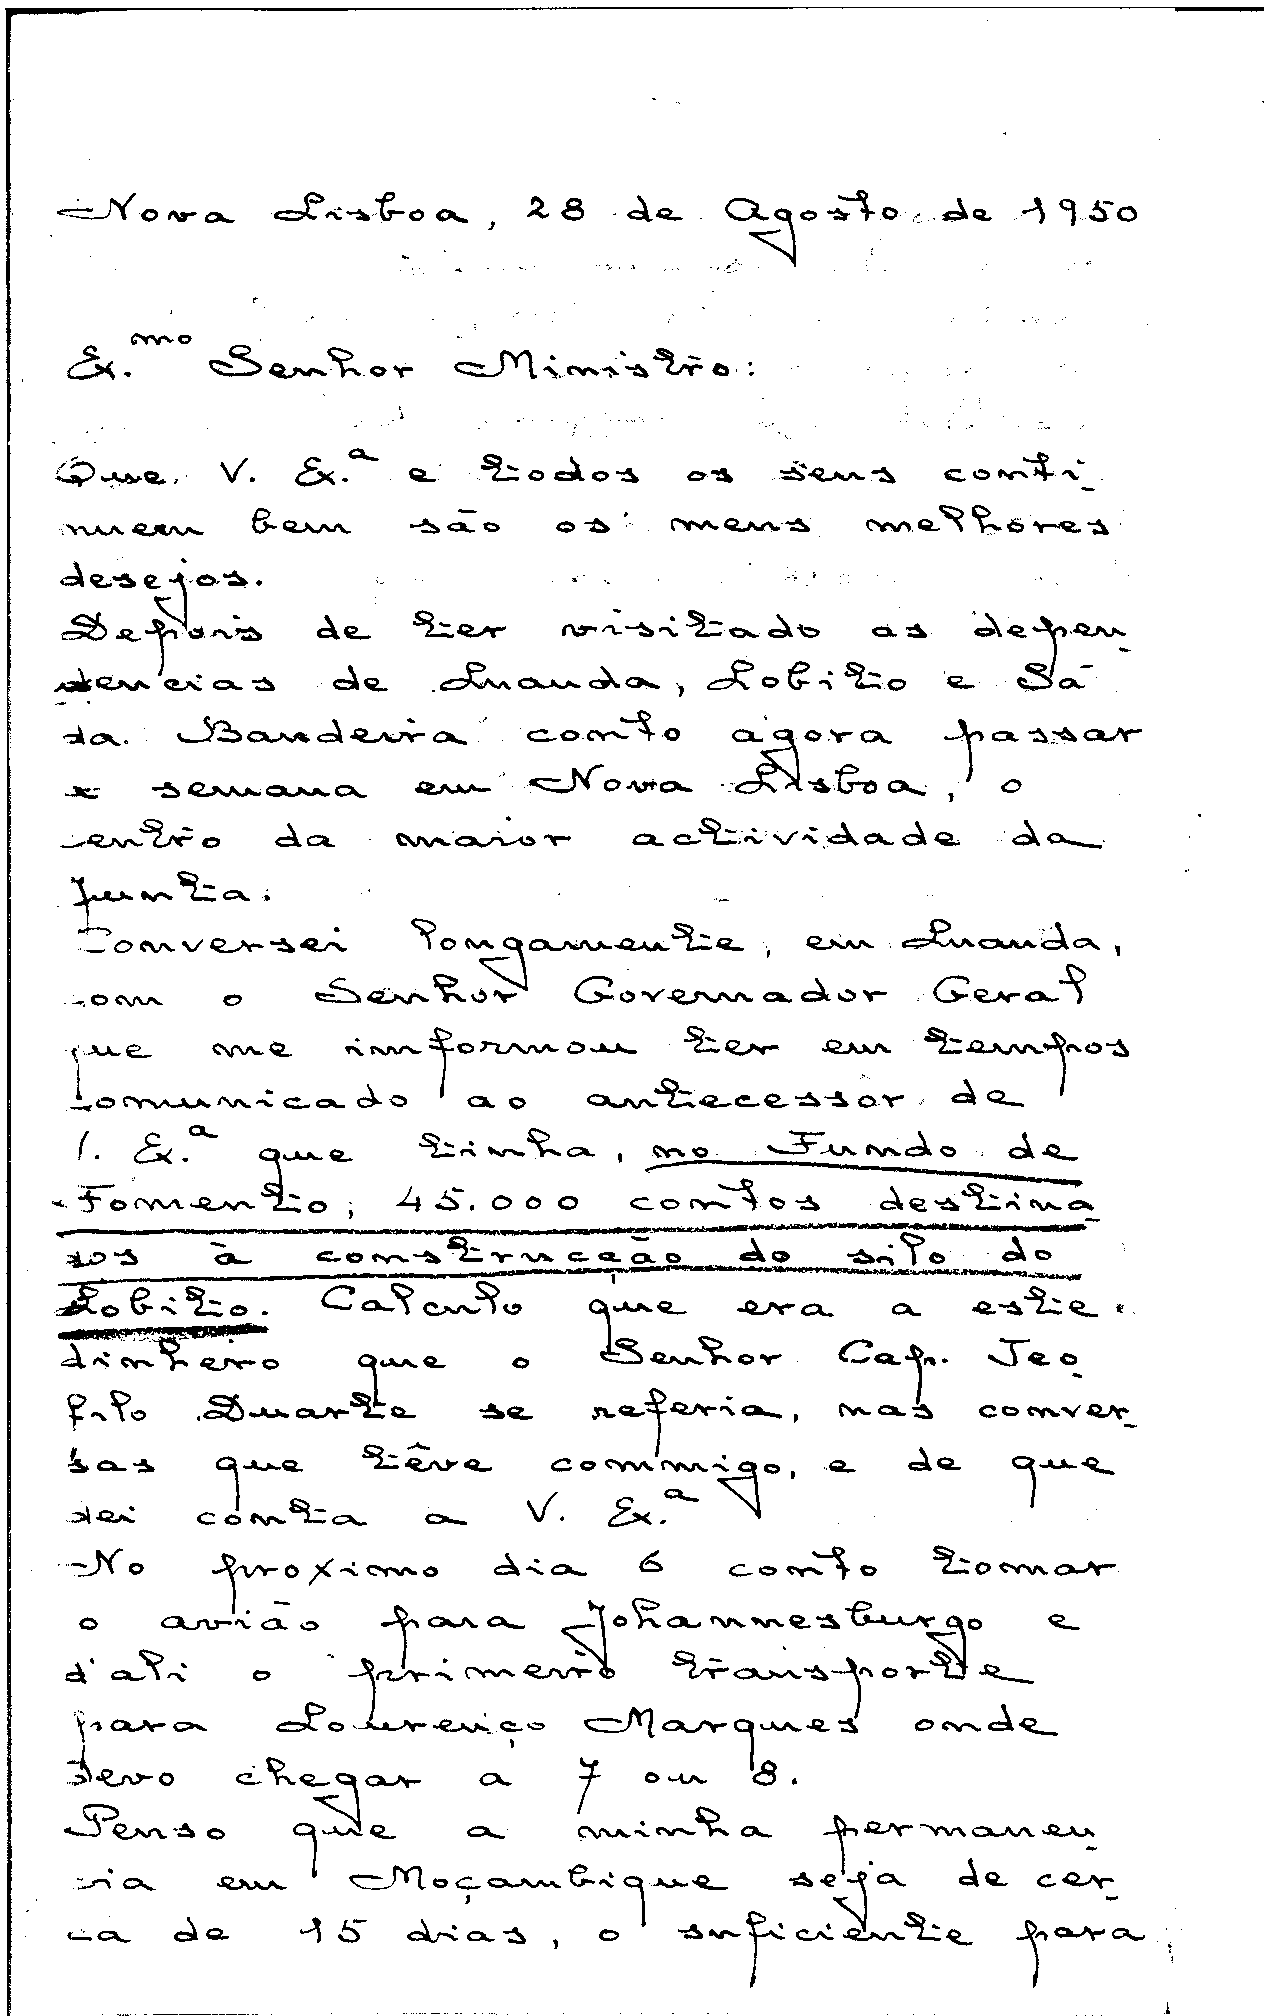 Nova Lisboa, 28 de Agosto de 1950
Ex.mo Senhor Ministro:
Que V. Ex.a e todos os seus conti-
nuem bem são os meus melhores
desejos.
Depois de ter visitado as depen-
dencias de Luanda, Lobito e Sá
da Bandeira conto agora passar
a semana em Nova Lisboa, o
centro da maior actividade da
Junta.
Conversei longamente, em Luanda,
com o Senhor Governador Geral
que me imformou ter em tempos
comunicado ao antecessor de
V. Ex.a que tinha, no Fundo de
Fomento, 45.000 contos destina-
dos à construcção do silo do
Lobito. Calculo que era a este
dinheiro que o Senhor Cap. Teo-
filo Duarte se referia, nas conver-
sas que têve commigo, e de que
dei conta a V. Ex.a
No proximo dia 6 conto tomar
o avião para Johannesburgo e
d'ali o primeiro transporte
para Lourenço Marques onde
devo chegar a 7 ou 8.
Penso que a minha permanen-
cia em Moçambique seja de cer-
ca de 15 dias, o suficiente para